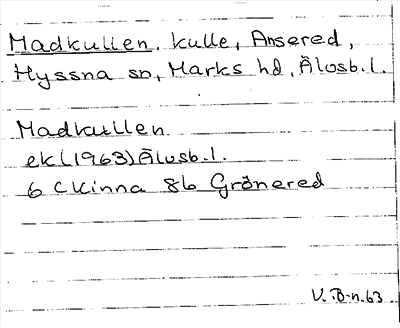 Madkullen, kulle, Ansered,
Hyssna sn, Marks hd, Älvsb.l.
Madkullen
ek(1963)Älvsb.l.
6 C Kinna 8b Grönered
V.B-n.63